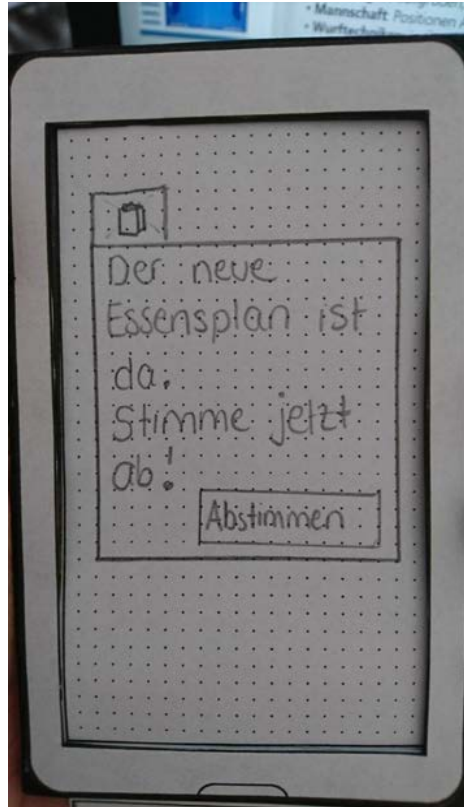 Mannschaft Positionen
Der neue
Essensplan ist
da.
Stimme jetzt
ab!
Abstimmen